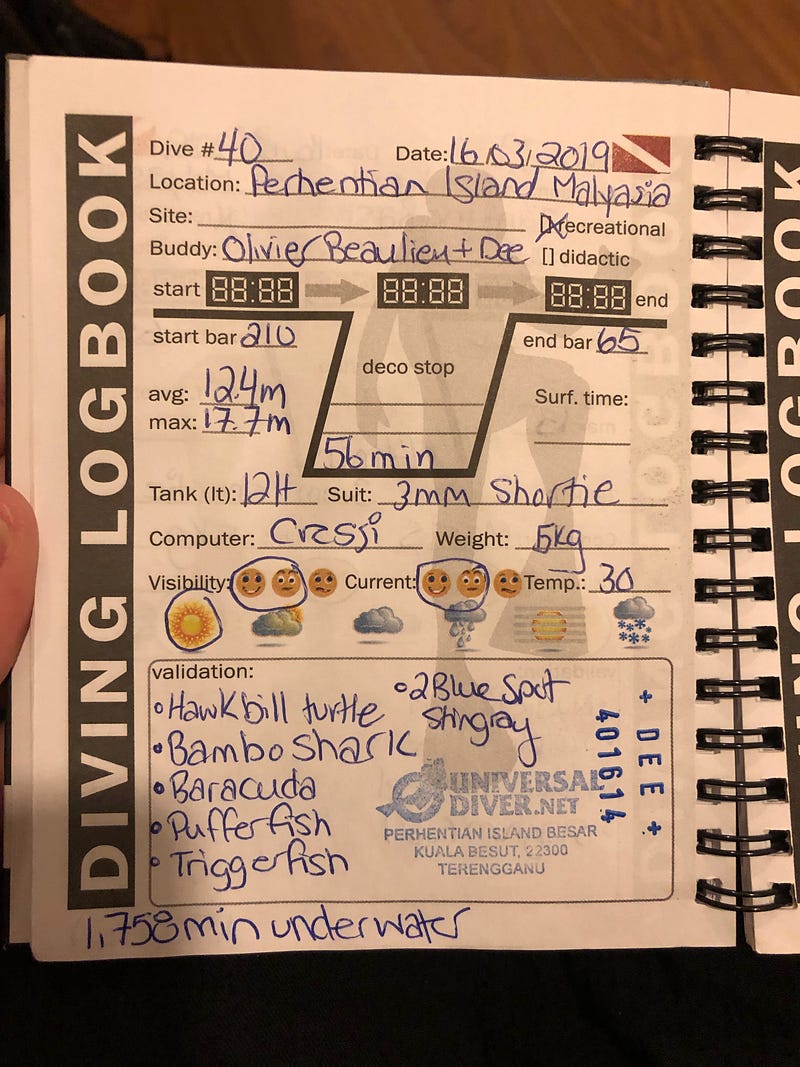 DIVING LOGBOOK
Dive # 40 Date: 16/03/2019
Location: Perhentian Island Malyasia
Site:
[X] recreational
Buddy: Olivier Beaulieu + Dee [] didactic
start 88:88 88:88 88:88 end
start bar 210 end bar 65
deco stop
avg: 12.4m Surf. time:
max: 17.7m
56 min
Tank (lt): 12lt Suit: 3mm Shortie
Computer: Cressi Weight: 5kg
Visibility: Current: Temp.: 30
validation:
• Hawkbill turtle
• Bambo shark
• Baracuda
• Pufferfish
• Triggerfish
• 2 Blue Spot
Stingray
+ DEE +
401614
UNIVERSAL
DIVER.NET
PERHENTIAN ISLAND BESAR
KUALA BESUT, 22300
TERENGGANU
1,758 min underwater